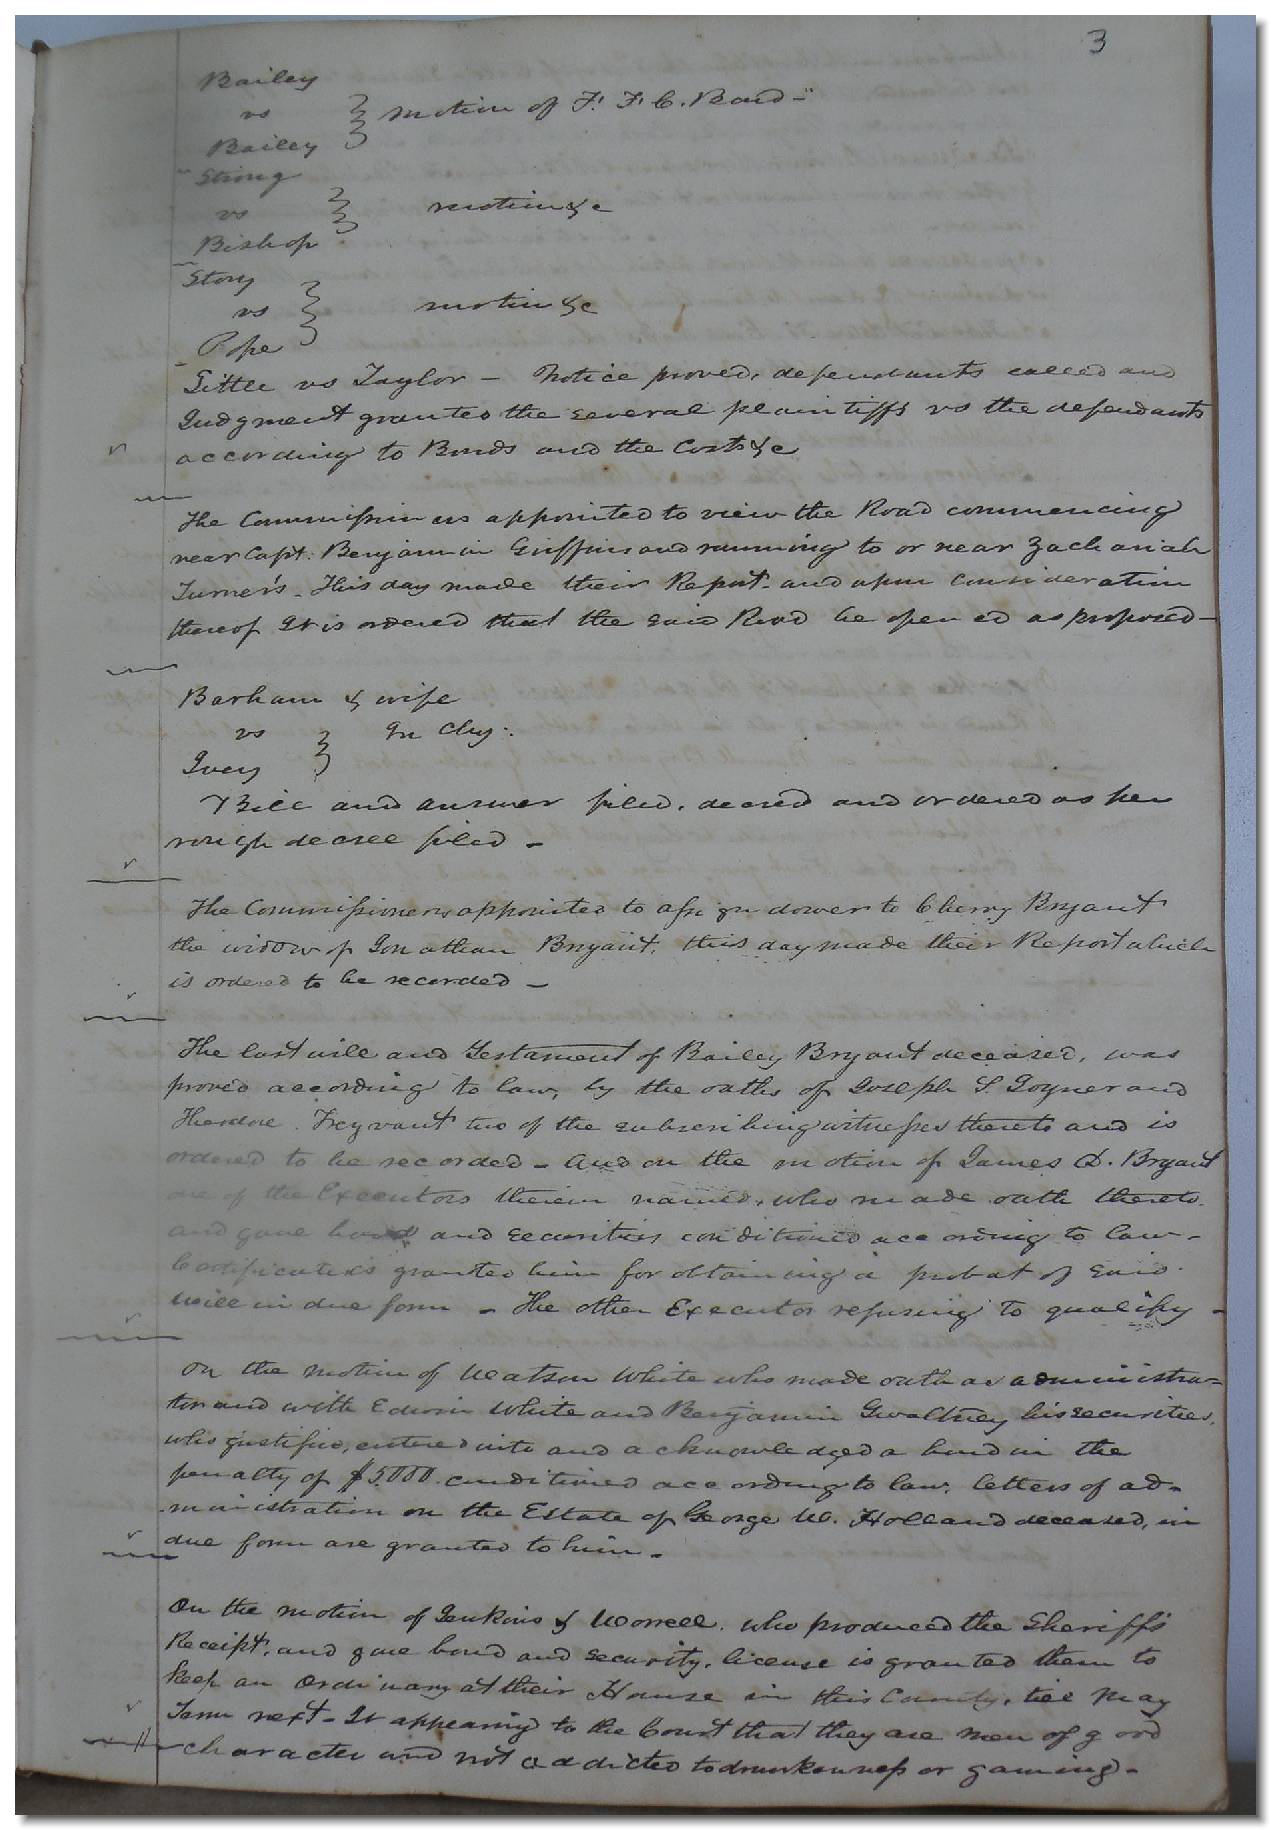 3
Bailey
vs } motion of F. F. C. Bond -"
Bailey
Strong
vs } motion &c
Bishop
Story
vs } motion &c
Pope
Little vs Taylor - Notice proved, defendants called and
Judgment granted the several plaintiffs vs the defendants
according to Bonds and the Costs &c
The Commissioners appointed to view the Road commencing
near Capt. Benjamin Griffins and running to or near Zachariah
Turner's. This day made their Report. and upon consideration
thereof It is ordered that the said Road be opened as proposed -
Barham & wife
vs } In Chy:
Ivey
Bill and answer filed, decred and ordered as per
rough decree filed -
The Commissioners appointed to assign dower to Cherry Bryant
the widow of Jonathan Bryant, this day made their Report which
is ordered to be recorded -
The last will and Testament of Bailey Bryant deceased, was
proved according to law, by the oaths of Joseph S. Joyner and
Theodore Trezvant two of the subscribing witnesses thereto and is
ordered to be recorded - And on the motion of James D. Bryant
one of the Executors therein named, who made oath thereto
and gave bond and securities conditioned according to law -
Certificate is granted him for obtaining a probat of said
will in due form - The other Executor refusing to qualify -
On the motion of Watson White who made oath as administra-
tor and with Edwin White and Benjamin Gwaltney his securities,
who justified, entered into and acknowledged a bond in the
penalty of $5000 conditioned according to law, letters of ad-
ministration on the Estate of George W. Holland deceased, in
due form are granted to him -
On the motion of Jenkins & Worrell, who produced the Sheriff's
Receipt, and gave bond and security, license is granted them to
keep an Ordinary at their House in this County, till May
Term next - It appearing to the Court that they are men of good
character and not addicted to drunkenness or gaming -